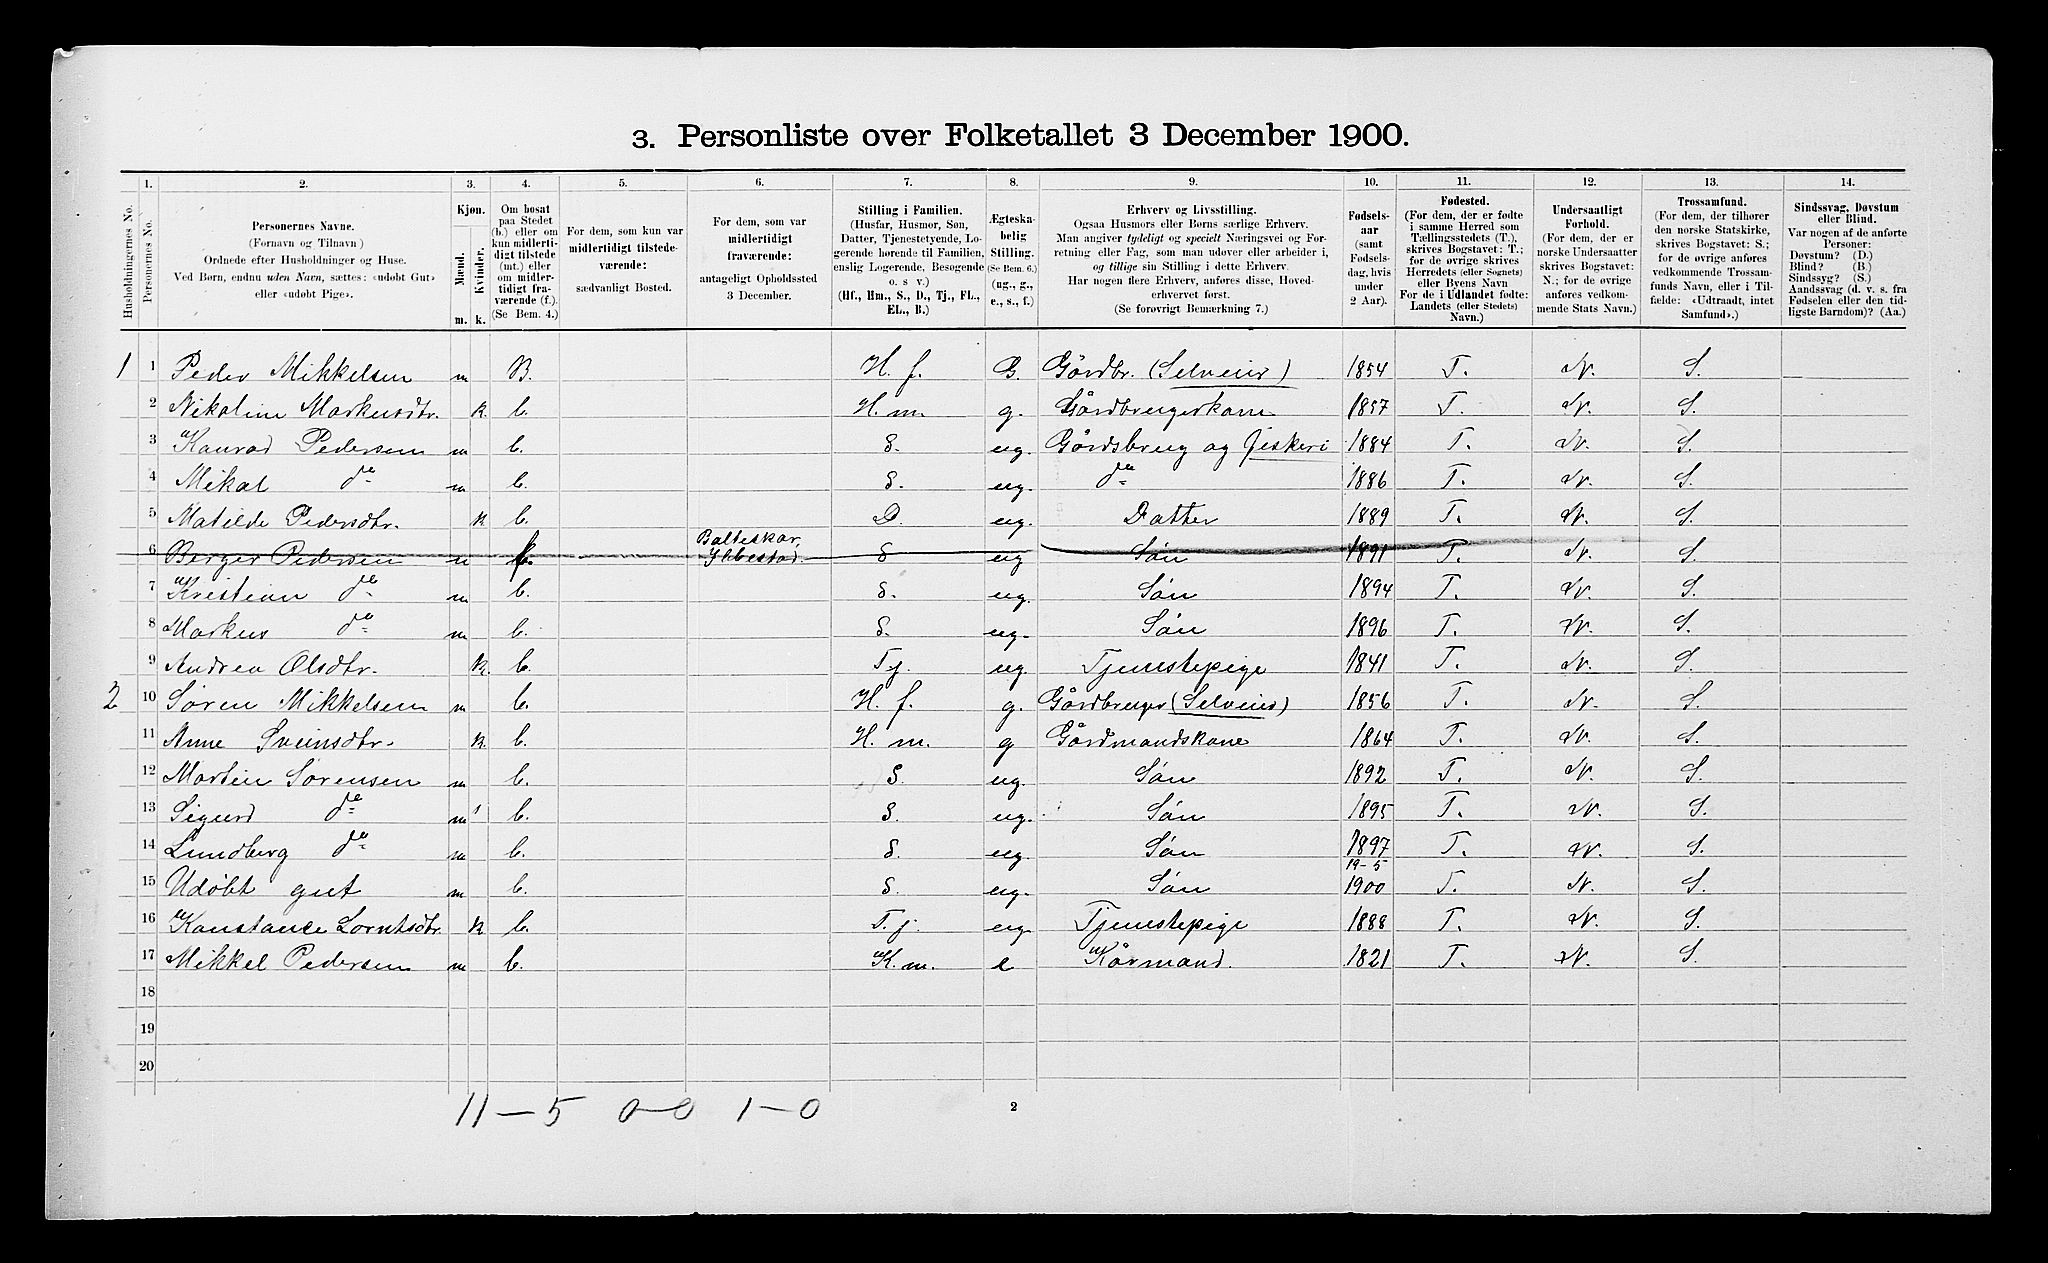 3. Personliste over Folketallet 3 December 1900.
Husholdningernes No.
1.
Personernes No.
2.
Personernes Navne.
(Fornavn og Tilnavn)
Ordnede efter Husholdninger og Huse.
Ved Børn, endnu uden Navn, sættes: «udøbt Gut»
eller «udøbt Pige».
3.
Kjøn.
Mænd.
Kvinder.
m. k.
4.
Om bosat
paa Stedet
(b.) eller om
kun midlerti-
digt tilstede
(mt.) eller
om midler-
tidigt fra-
værende (f.).
(Se Bem. 4.)
5.
For dem, som kun var
midlertidigt tilstede-
værende:
sædvanligt Bosted.
6.
For dem, som var
midlertidigt
fraværende:
antageligt Opholdssted
3 December.
7.
Stilling i Familien.
(Husfar, Husmor, Søn,
Datter, Tjenestetyende, Lo-
gerende hørende til Familien,
enslig Logerende, Besøgende
o. s v.)
(Hf., Hm., S., D., Tj., FL.,
EL., B.)
8.
Ægteska-
belig
Stilling.
(Se Bem. 6.)
(ug., g.,
e., s., f.)
9.
Erhverv og Livsstilling.
Ogsaa Husmors eller Børns særlige Erhverv.
Man angiver tydeligt og specielt Næringsvei og For-
retning eller Fag, som man udøver eller arbeider i,
og tillige sin Stilling i dette Erhverv.
Har nogen flere Erhverv, anføres disse, Hoved-
erhvervet først.
(Se forøvrigt Bemærkning 7.)
10.
Fødsels-
aar
(samt
Fødsels-
dag, hvis
under
2 Aar).
11.
Fødested.
(For dem, der er fødte
i samme Herred som
Tællingsstedets (T.),
skrives Bogstavet: T.;
for de øvrige skrives
Herredets (eller Sognets)
eller Byens Navn
For de i Udlandet fødte:
Landets (eller Stedets)
Navn.)
12.
Undersaatligt
Forhold.
(For dem, der er
norske Undersaatter
skrives Bogstavet:
N.; for de øvrige
anføres vedkom-
mende Stats Navn.)
13.
Trossamfund.
(For dem, der tilhører
den norske Statskirke,
skrives Bogstavet: S.;
for de øvrige anføres
vedkommende Trossam-
funds Navn, eller i Til-
fælde: «Udtraadt, intet
Samfund».)
14.
Sindssvag, Døvstum
eller Blind.
Var nogen af de anførte
Personer:
Døvstum? (D.)
Blind? (B.)
Sindssyg? (S.)
Aandssvag (d. v. s. fra
Fødselen eller den tid-
ligste Barndom)? (Aa.)
1 1 Peder Mikkelsen m B. H. f. G. Gårdbr. (Selveier) 1854 T. N. S.
2 Nikoline Markusdtr. k b. H. m. g. Gårdbrugerkone 1857 T. N. S.
3 Konrad Pedersen m b. S. ug. Gårdsbrug og fiskeri 1884 T. N. S.
4 Mikal do m b. S. ug. do 1886 T. N. S.
5 Matilde Pedersdtr. k b. D. ug. Datter 1889 T. N. S.
6 Berger Pedersen m f. Balteskar, Ibbestad. S ug Søn 1891 T. N. S.
7 Kristian do m b. S. ug. Søn 1894 T. N. S.
8 Markus do m b. S. ug. Søn 1896 T. N. S.
9 Andrea Olsdtr. k. b. Tj. ug. Tjenestepige 1841 T. N. S.
2 10 Søren Mikkelsen m b. H. f. g. Gårdbruger (Selveier) 1856 T. N. S.
11 Anne Sveinsdtr. k. b. H. m. g Gårdmandskone 1864 T. N. S.
12 Martin Sørensen m b. S. ug. Søn 1892 T. N. S.
13 Sigurd do m b. S. ug. Søn 1895 T. N. S.
14 Lundberg do m b. S. ug. Søn 1897 T. N. S.
15 Udøbt gut m b. S. ug. Søn 19-5 1900 T. N. S.
16 Konstance Lorntsdtr. k b. T. j. ug. Tjenestepige 1888 T. N. S.
17 Mikkel Pedersen m b. K. m. e Kårmand. 1821 T. N. S.
18
19
20
11 - 5 0-0 1-0
2